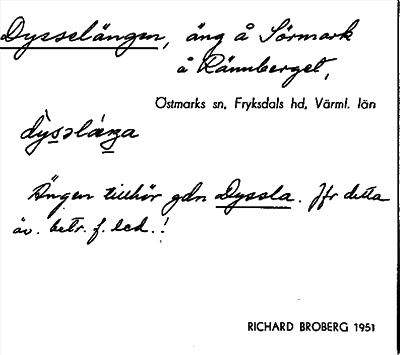 Dysselängen, äng å Sörmark
å Rännberget,
Östmarks sn, Fryksdals hd, Värml. län
Ängen tillhör gdn Dyssla. Jfr detta
äv. betr. f. led.!
RICHARD BROBERG 1951